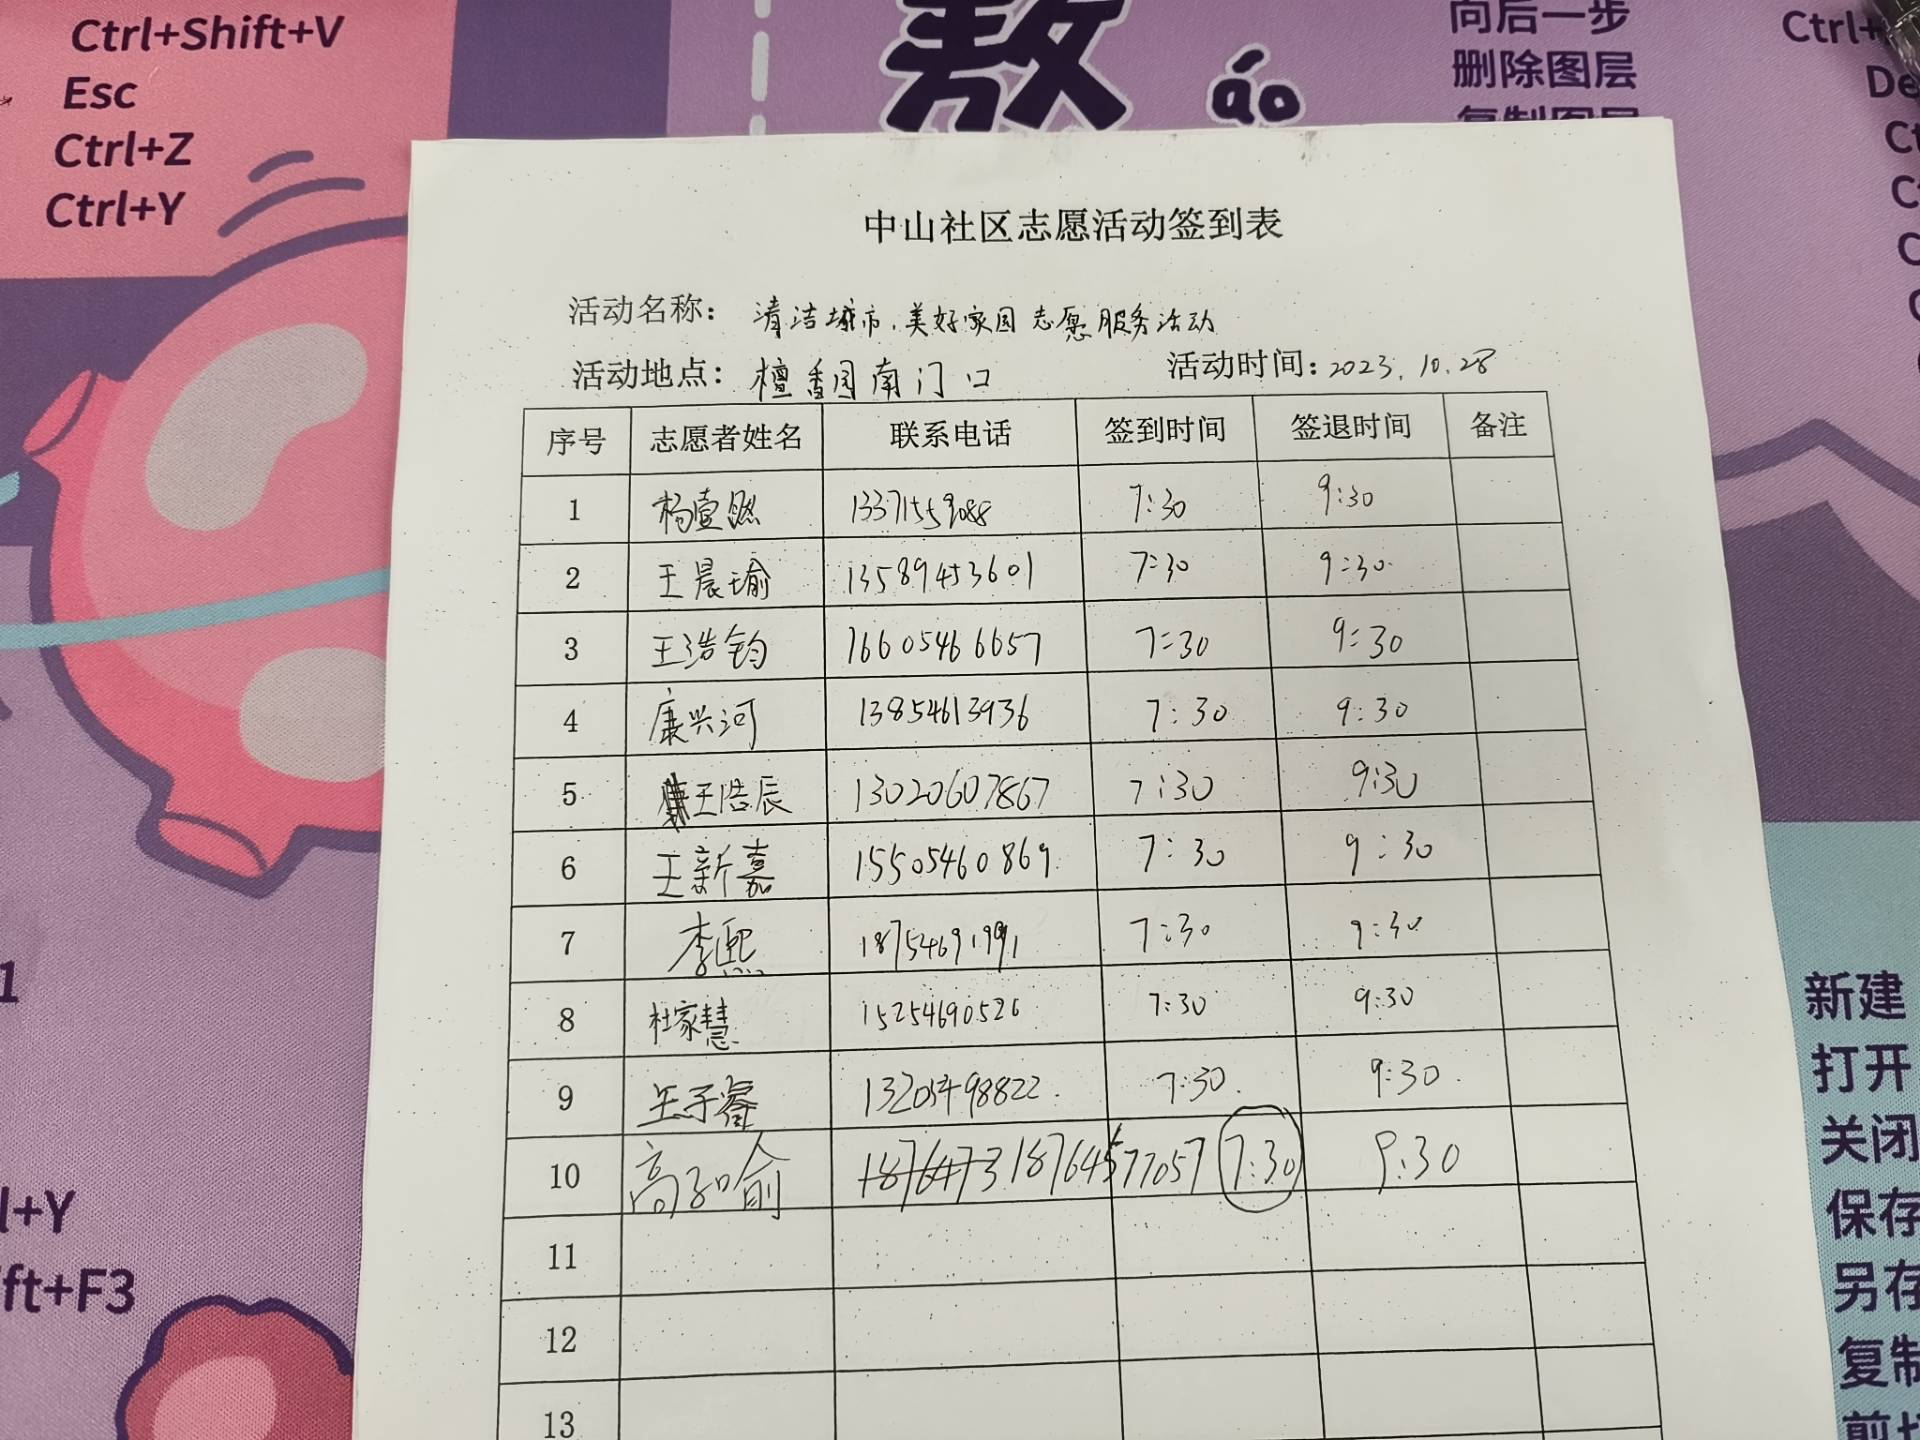 Ctrl+Shift+V
Esc
Ctrl+Z
Ctrl+Y
敖
áo
向后一步
删除图层
复制图层
Ctrl+
中山社区志愿活动签到表
活动名称： 清洁城市.美好家园志愿服务活动
活动地点： 檀香园南门口 活动时间：2023.10.28
序号 志愿者姓名 联系电话 签到时间 签退时间 备注
1 杨壹 7:30 9:30
2 王晨瑜 13589453601 7:30 9:30
3 王浩钧 16605466657 7:30 9:30
4 康兴河 13854613936 7:30 9:30
5 王浩辰 13020607867 7:30 9:30
6 王新嘉 15505460869 7:30 9:30
7 李熙 18754691991 7:30 9:30
8 杜家慧 15254690526 7:30 9:30
9 王子睿 7:30 9:30
10 7:30 9:30
11
12
13
新建
打开
关闭
保存
另存
复制
l+Y
ft+F3